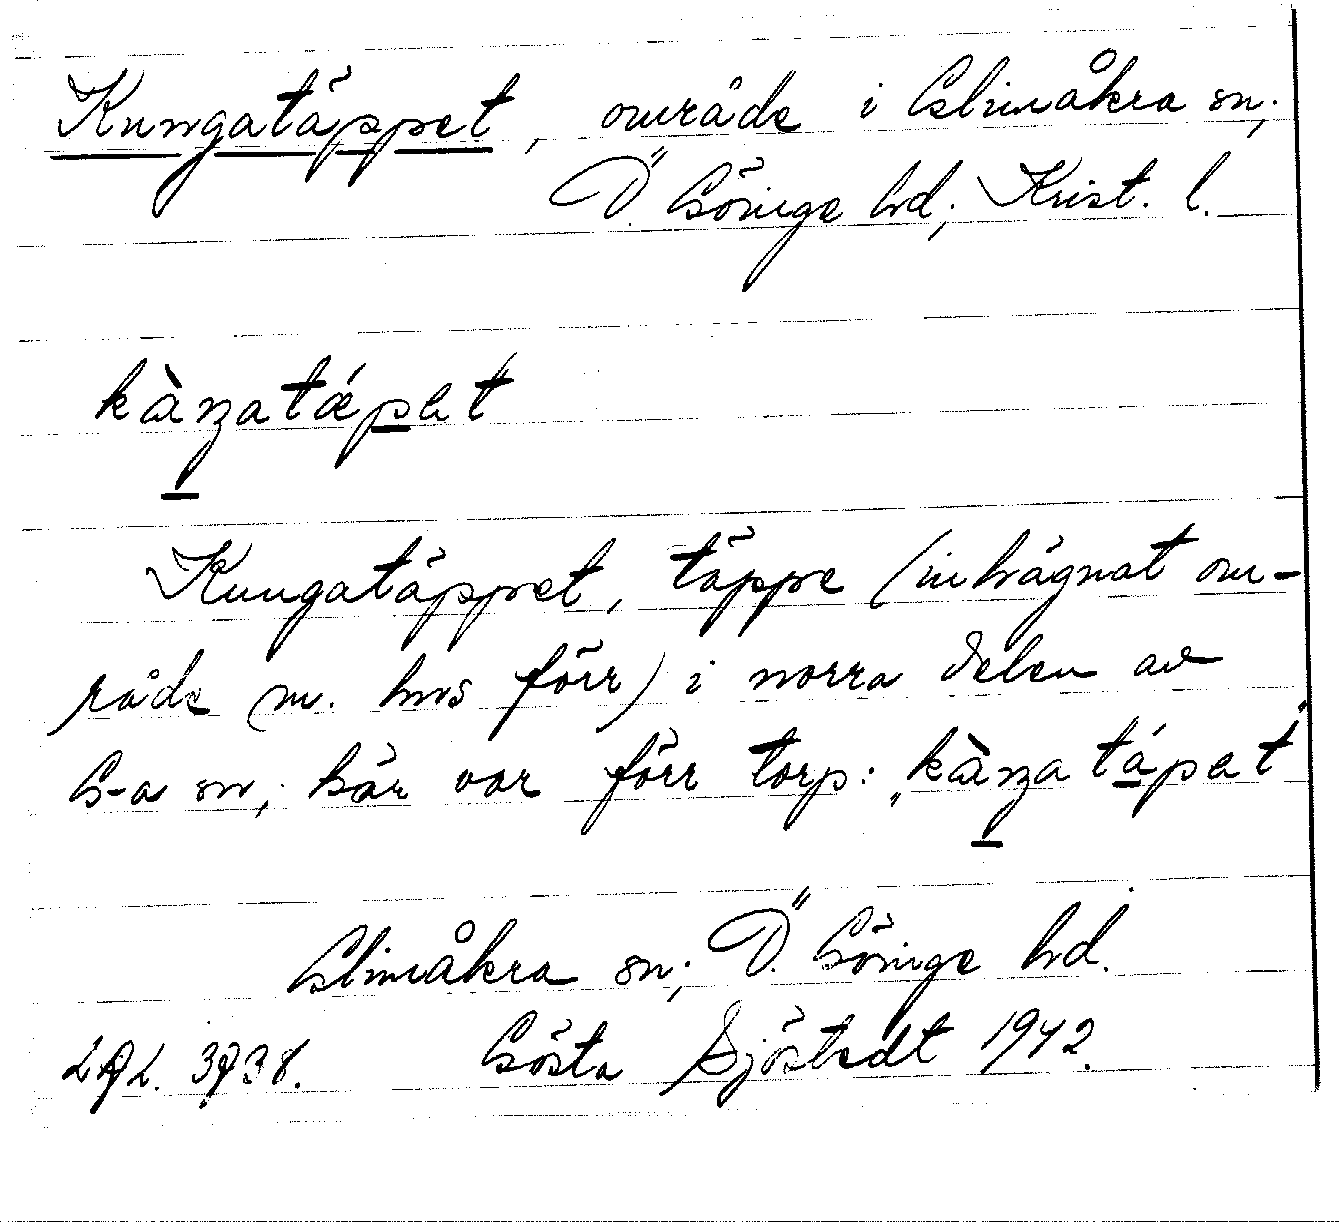 Kungatäppet, område i Glimåkra sn;
Ö. Göinge hd; Krist. l.
kàŋatǽpet
Kungatäppet, täppe (inhägnat om-
råde m. hus förr) i norra delen av
G-a sn; här var förr torp: „kàŋatápet"
Glimåkra sn; Ö. Göinge hd.
Gösta Sjöstedt 1942.